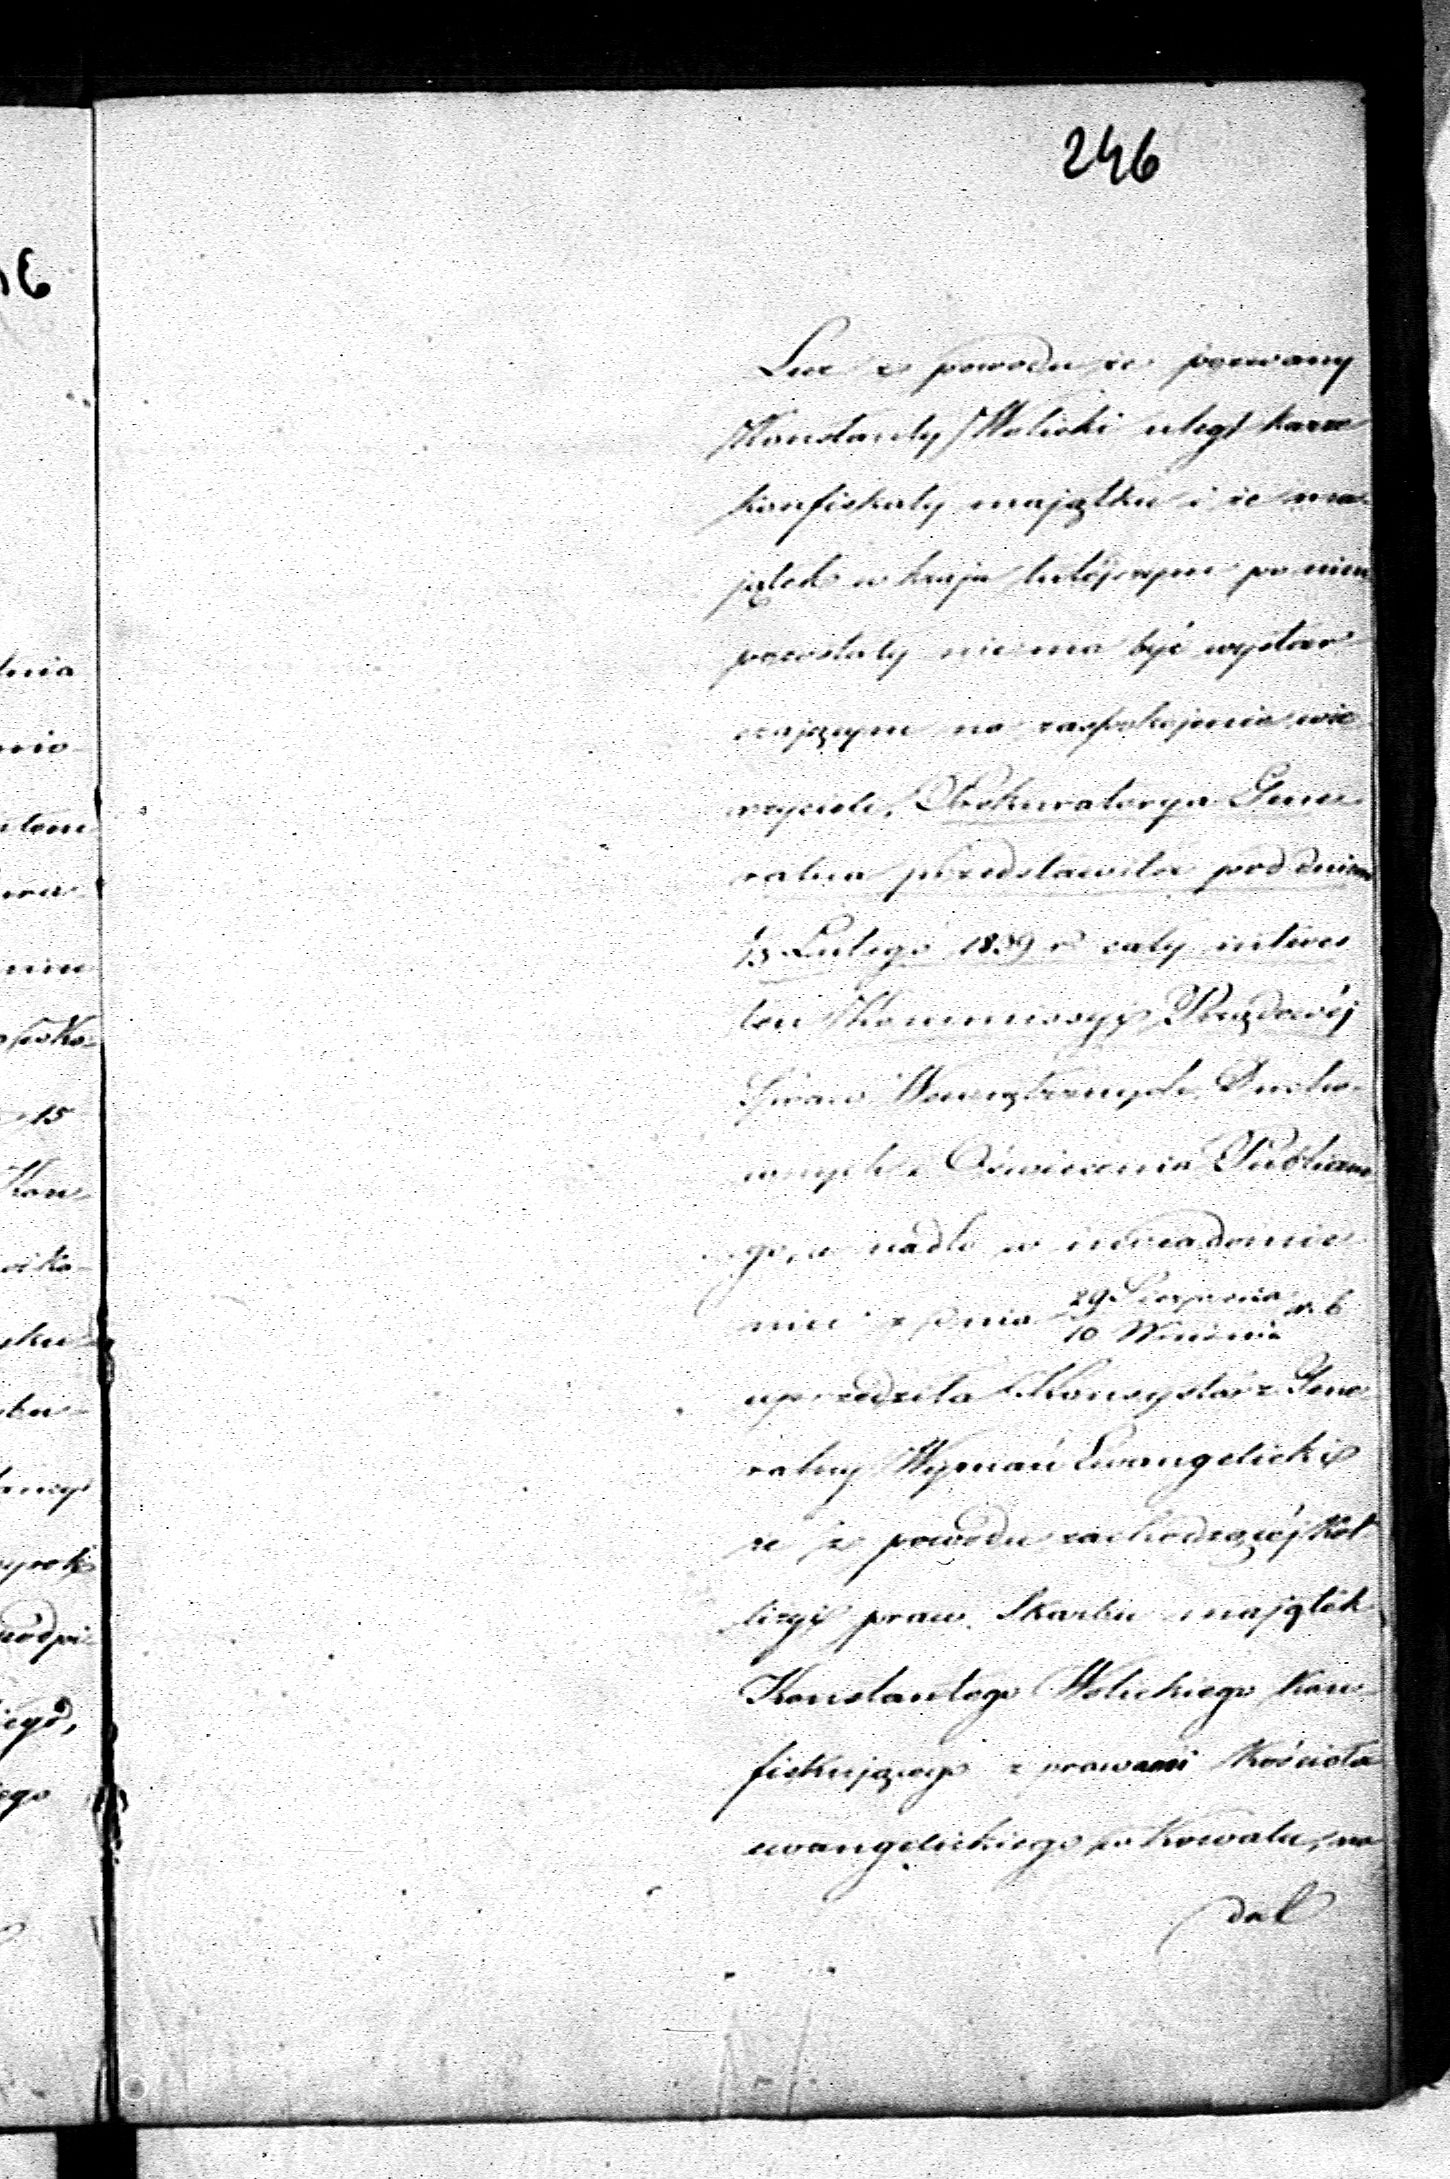 246
Lecz z powodu że pozwany
Konstanty Wolicki uległ karze
konfiskaty majątku i że ma-
jątek w kraju tutejszym po nim
pozostały nie ma być wystar-
czającym na zaspokojenie wie-
rzycieli, Prokuratorya Gene-
ralna przedstawiła pod dniem
Lutego 1839 r cały interes
ten Kommissyi Rządowéj
Spraw Wewnętrznych, Ducho-
wnych i Oświecenia Publiczne-
go, a nadto w uwiadomie-
niu z dnia 29 Sierpnia r. b
10 Września
uprzedziła Konsystórz Gene-
ralny Wyznań Ewangelickich
że z powodu zachodzącéj Kol-
lizyi praw Skarbu majątek
Konstantego Wolickiego Kon-
fiskującego z prawami Kościoła
ewangelickiego w Kowalu, na-
dal
nia
nio-
niu
15
Kon-
ego